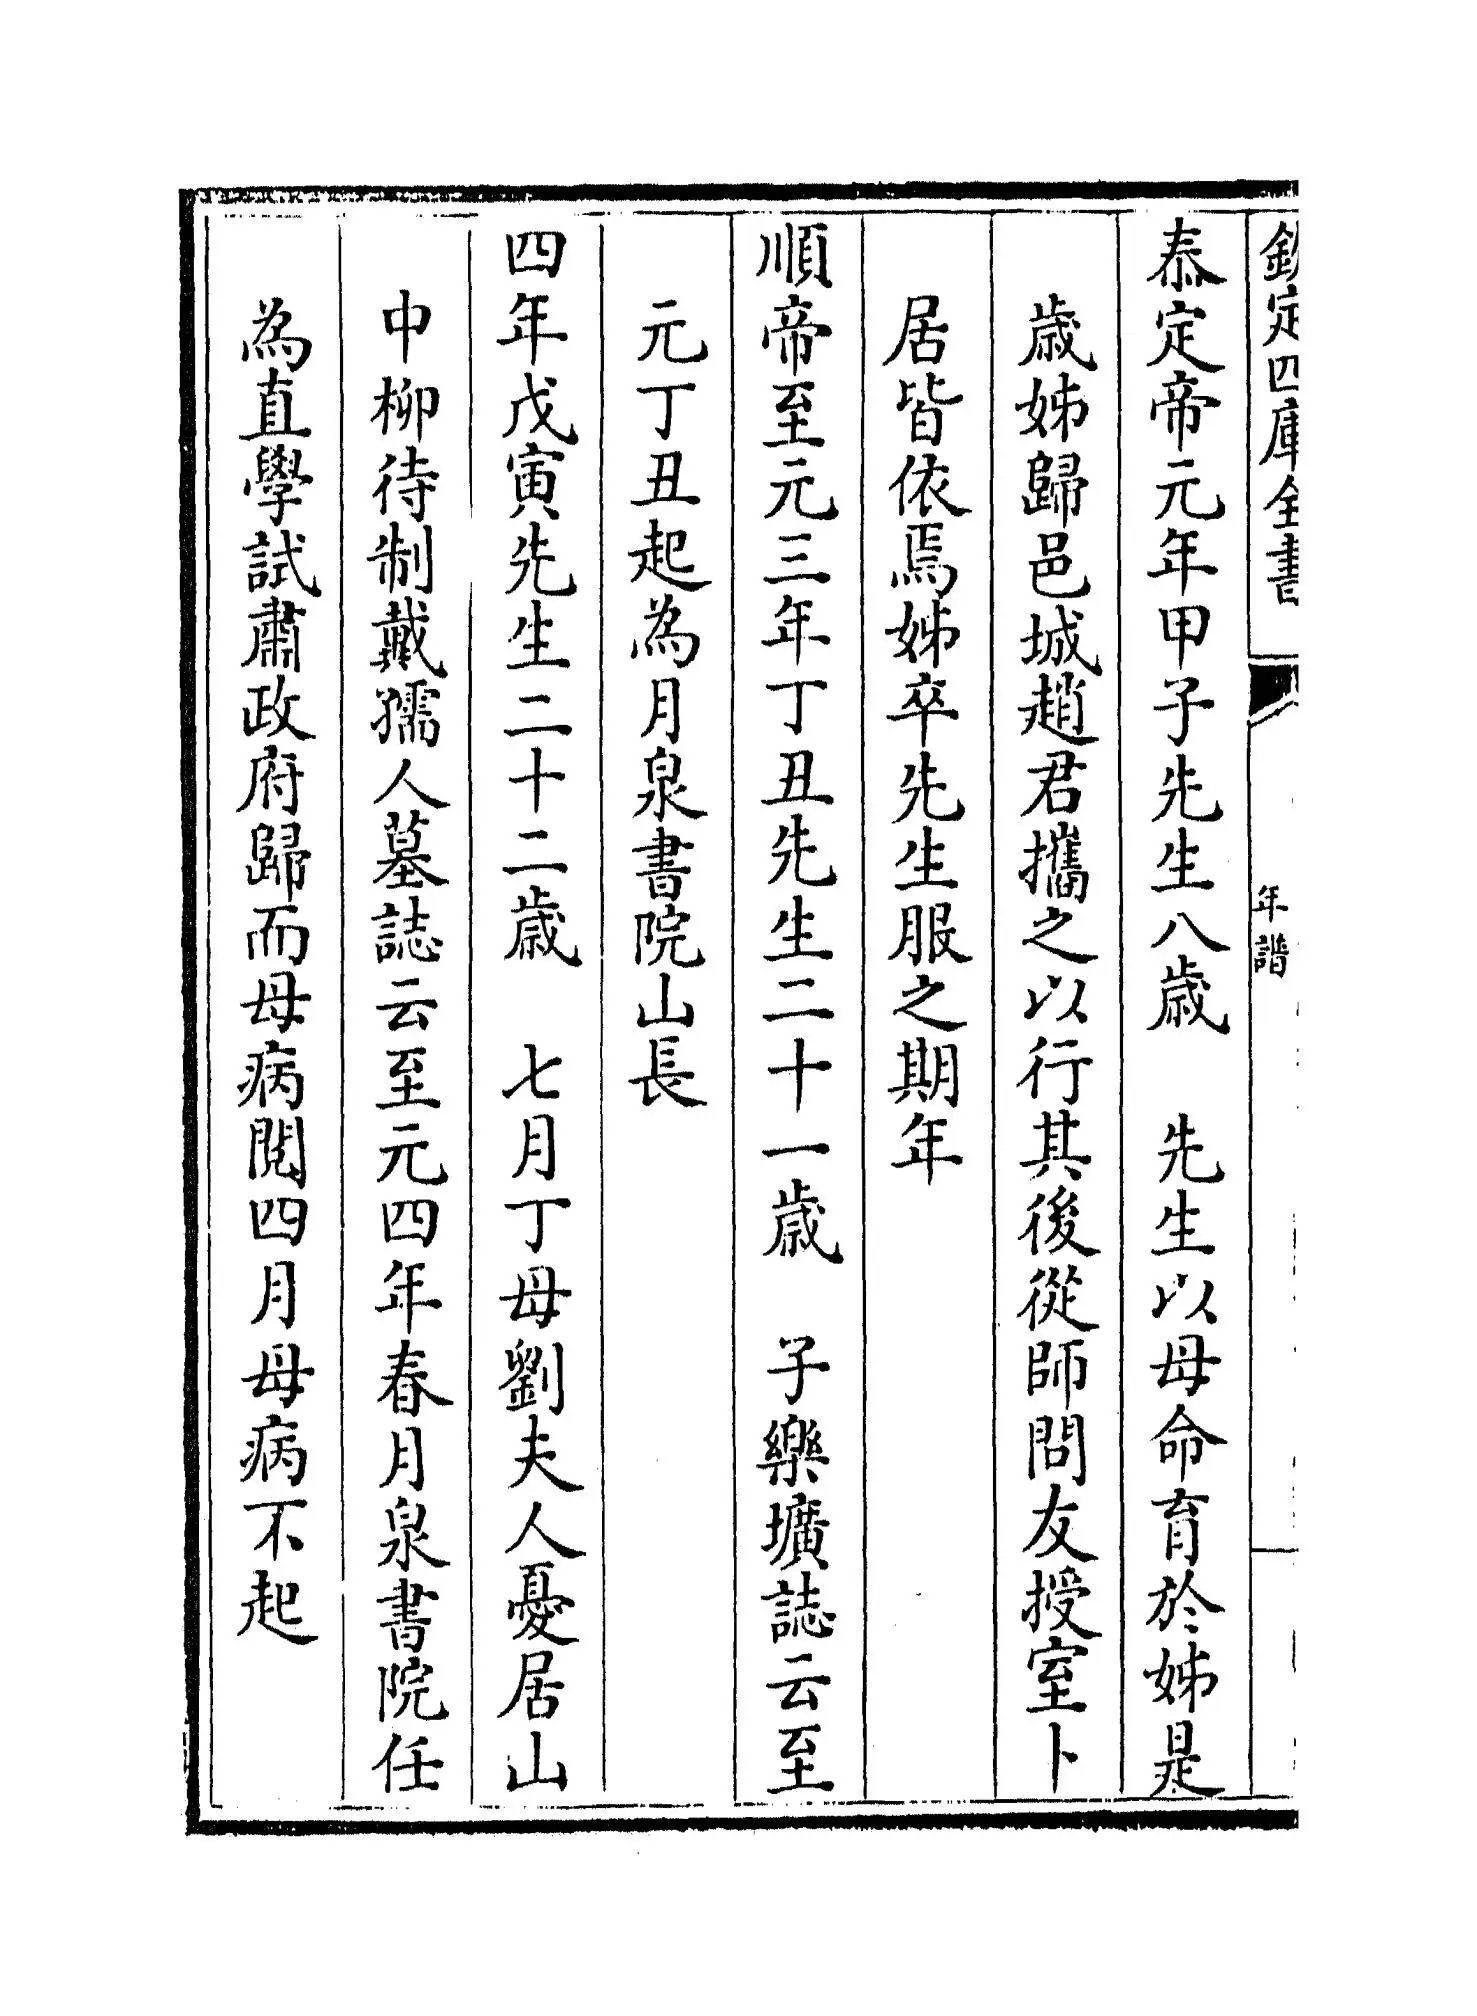 欽定四庫全書
年譜
泰定帝元年甲子先生八歳　先生以母命育於姊是
歳姊歸邑城趙君攜之以行其後從師問友授室卜
居皆依焉姊卒先生服之期年
順帝至元三年丁丑先生二十一歳　子樂壙誌云至
元丁丑起為月泉書院山長
四年戊寅先生二十二歳　七月丁母劉夫人憂居山
中柳待制戴孺人墓誌云至元四年春月泉書院任
為直學試肅政府歸而母病閱四月母病不起